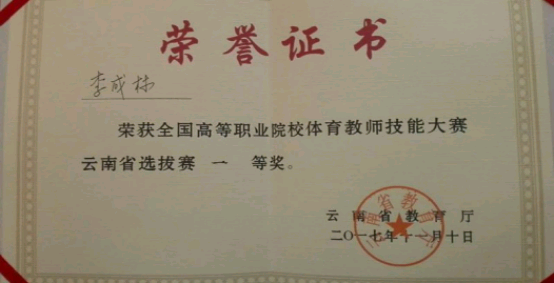 荣誉证书
李成林
荣获全国高等职业院校体育教师技能大赛
云南省选拔赛 一 等奖。
云南省教育厅
二〇一七年十一月十日